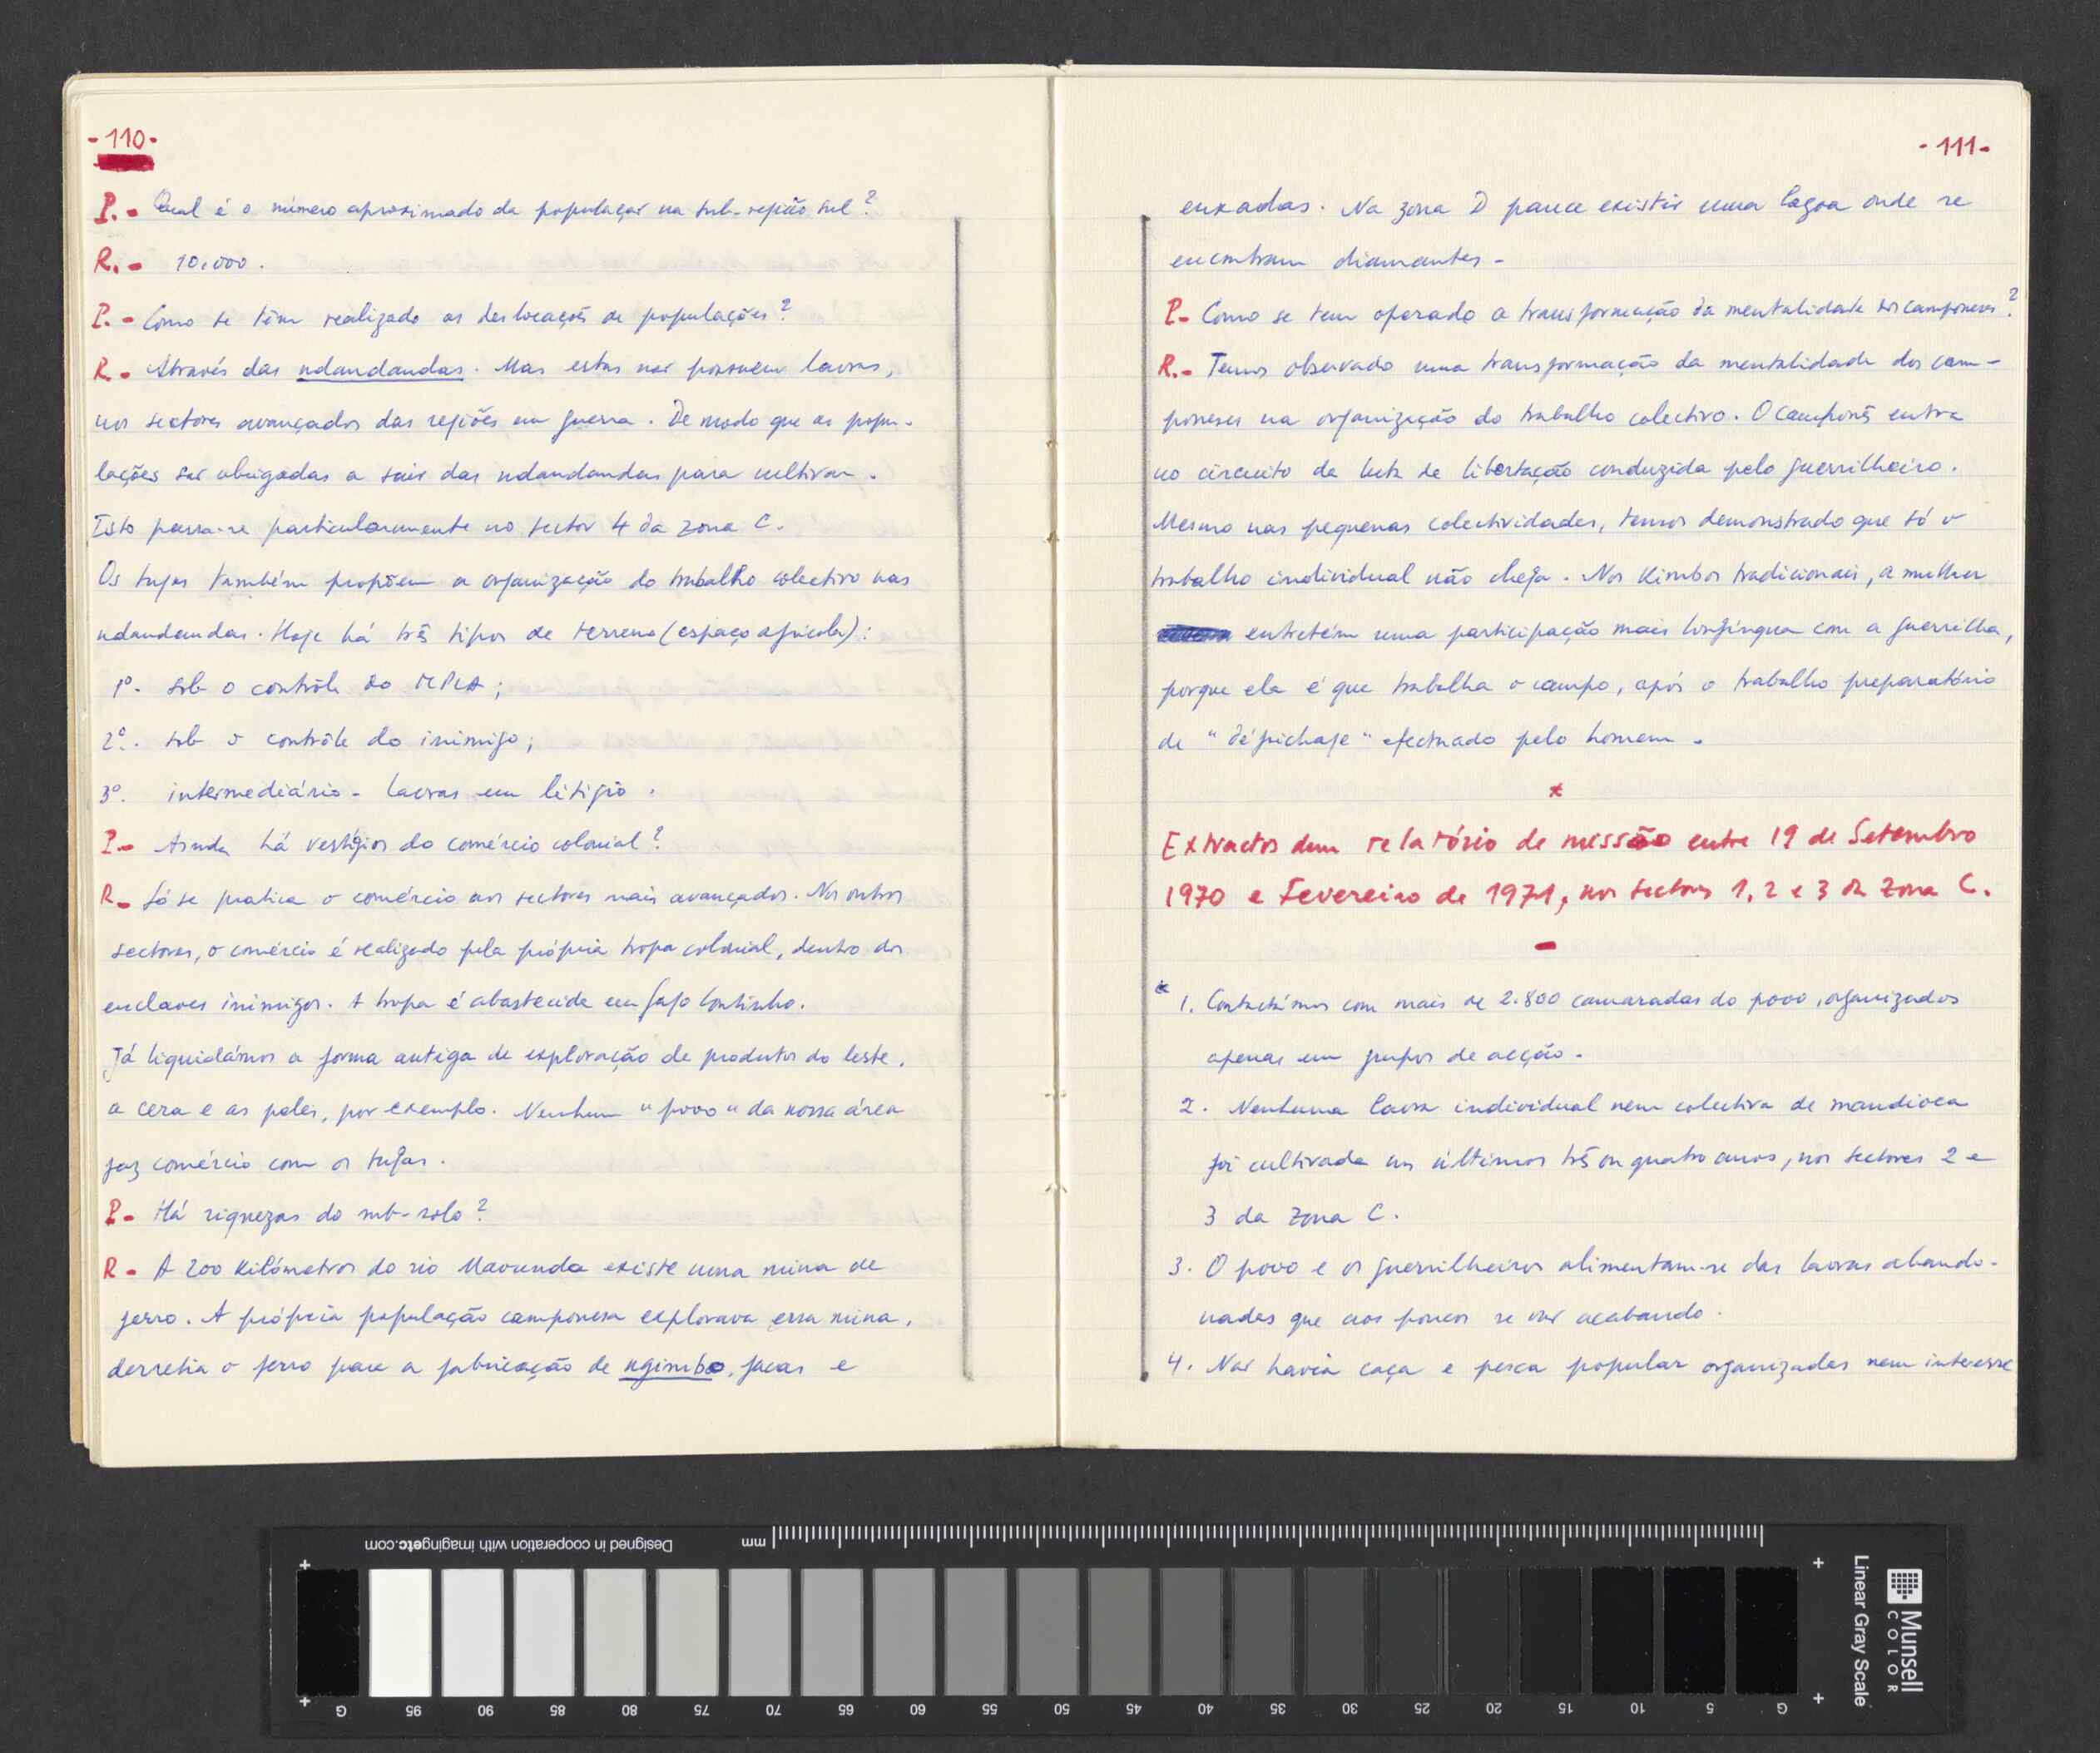 - 110 -
P. - Qual é o número aproximado da população na sub-região sul?
R. - 10.000.
P. - Como se têm realizado as deslocações de populações?
R. - Através das ndandandas. Mas estas não possuem lavras,
nos sectores avançados das regiões em guerra. De modo que as popu-
lações são obrigadas a sair das ndandandas para cultivar.
Isto passa-se particularmente no sector 4 da zona C.
Os tugas também propõem a organização do trabalho colectivo nas
ndandandas. Hoje há três tipos de terreno (espaço agrícola):
1º. sob o contrôle do MPLA;
2º. sob o contrôle do inimigo;
3º. intermediário - lavras em litígio.
P. - Ainda há vestígios do comércio colonial?
R - Só se pratica o comércio nos sectores mais avançados. Nos outros
sectores, o comércio é realizado pela própria tropa colonial, dentro dos
enclaves inimigos. A tropa é abastecida em Gago Coutinho.
Já liquidámos a forma antiga de exploração de produtos do leste,
a cera e as peles, por exemplo. Nenhum "povo" da nossa área
faz comércio com os tugas.
P - Há riquezas do sub-solo?
R - A 200 kilómetros do rio Mavunda existe uma mina de
ferro. A própria população camponesa explorava essa mina,
derretia o ferro para a fabricação de ngimbo, facas e
- 111 -
enxadas. Na zona D parece existir uma lagoa onde se
encontram diamantes -
P - Como se tem operado a transformação da mentalidade dos camponeses?
R. - Temos observado uma transformação da mentalidade dos cam-
poneses na organização do trabalho colectivo. O camponês entra
no circuito da luta de libertação conduzida pelo guerrilheiro.
Mesmo nas pequenas colectividades, temos demonstrado que só o
trabalho individual não chega. Nos Kimbos tradicionais, a mulher
entretém uma participação mais longínqua com a guerrilha,
porque ela é que trabalha o campo, após o trabalho preparatório
de "défichage" efectuado pelo homem.
*
Extractos dum relatório de missão entre 19 de Setembro
1970 e Fevereiro de 1971, nos sectores 1, 2 e 3 da Zona C.
-
* 1. Contactámos com mais de 2.800 camaradas do povo, organizados
apenas em grupos de acção.
2. Nenhuma lavra individual nem colectiva de mandioca
foi cultivada nos últimos três ou quatro anos, nos sectores 2 e
3 da Zona C.
3. O povo e os guerrilheiros alimentam-se das lavras abando-
nadas que aos poucos se vão acabando.
4. Não havia caça e pesca popular organizadas nem interesse
Designed in cooperation with imagingetc.com
mm
G 95 90 85 80 75 70 65 60 55 50 45 40 35 30 25 20 15 10 5 G
Linear Gray Scale
Munsell
COLOR